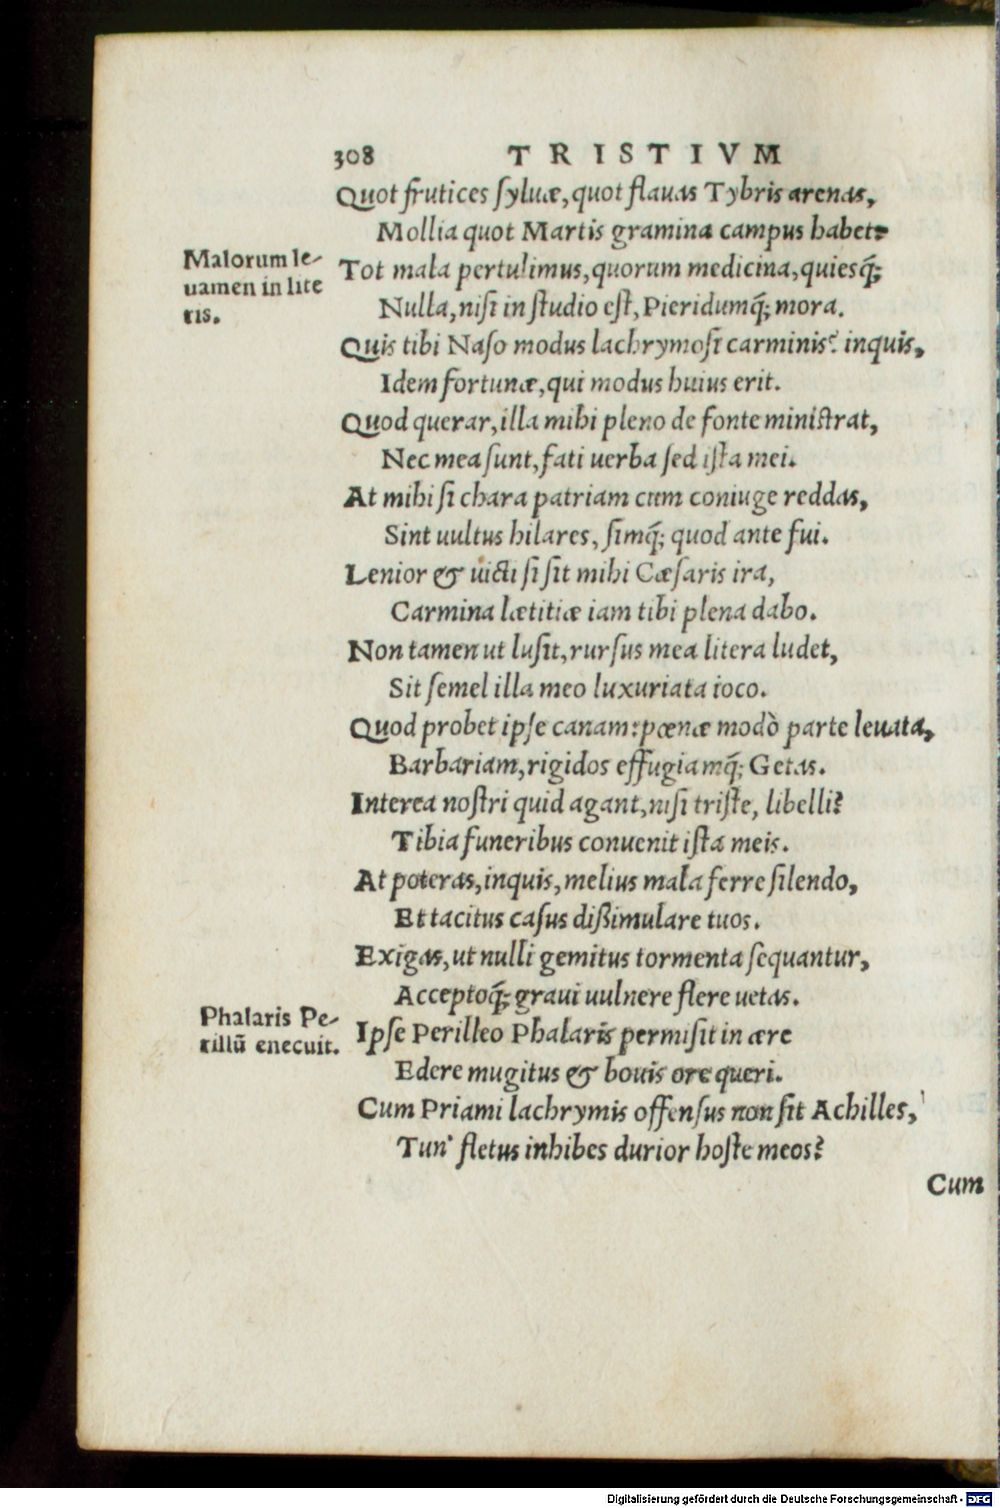 308 TRISTIVM
Quot frutices syluæ, quot flauas Tybris arenas,
Mollia quot Martis gramina campus habet:
Malorum le-
uamen in lite
ris.
Tot mala pertulimus, quorum medicina, quiesq́;
Nulla, nisi in studio est, Pieridumq́; mora.
Quis tibi Naso modus lachrymosi carminis? inquis,
Idem fortunæ, qui modus huius erit.
Quod querar, illa mihi pleno de fonte ministrat,
Nec mea sunt, fati uerba sed ista mei.
At mihi si chara patriam cum coniuge reddas,
Sint uultus hilares, simq́; quod ante fui.
Lenior & uicti si sit mihi Cæsaris ira,
Carmina lætitiæ iam tibi plena dabo.
Non tamen ut lusit, rursus mea litera ludet,
Sit semel illa meo luxuriata ioco.
Quod probet ipse canam: pœnæ modò parte leuata,
Barbariam, rigidos effugiamq́; Getas.
Interea nostri quid agant, nisi triste, libelli?
Tibia funeribus conuenit ista meis.
At poteras, inquis, melius mala ferre silendo,
Et tacitus casus dißimulare tuos.
Exigas, ut nulli gemitus tormenta sequantur,
Acceptoq́; graui uulnere flere uetas.
Phalaris Pe-
rillũ enecuit.
Ipse Perilleo Phalaris permisit in ære
Edere mugitus & bouis ore queri.
Cum Priami lachrymis offensus non sit Achilles,
Tun' fletus inhibes durior hoste meos?
Cum
Digitalisierung gefördert durch die Deutsche Forschungsgemeinschaft - DFG